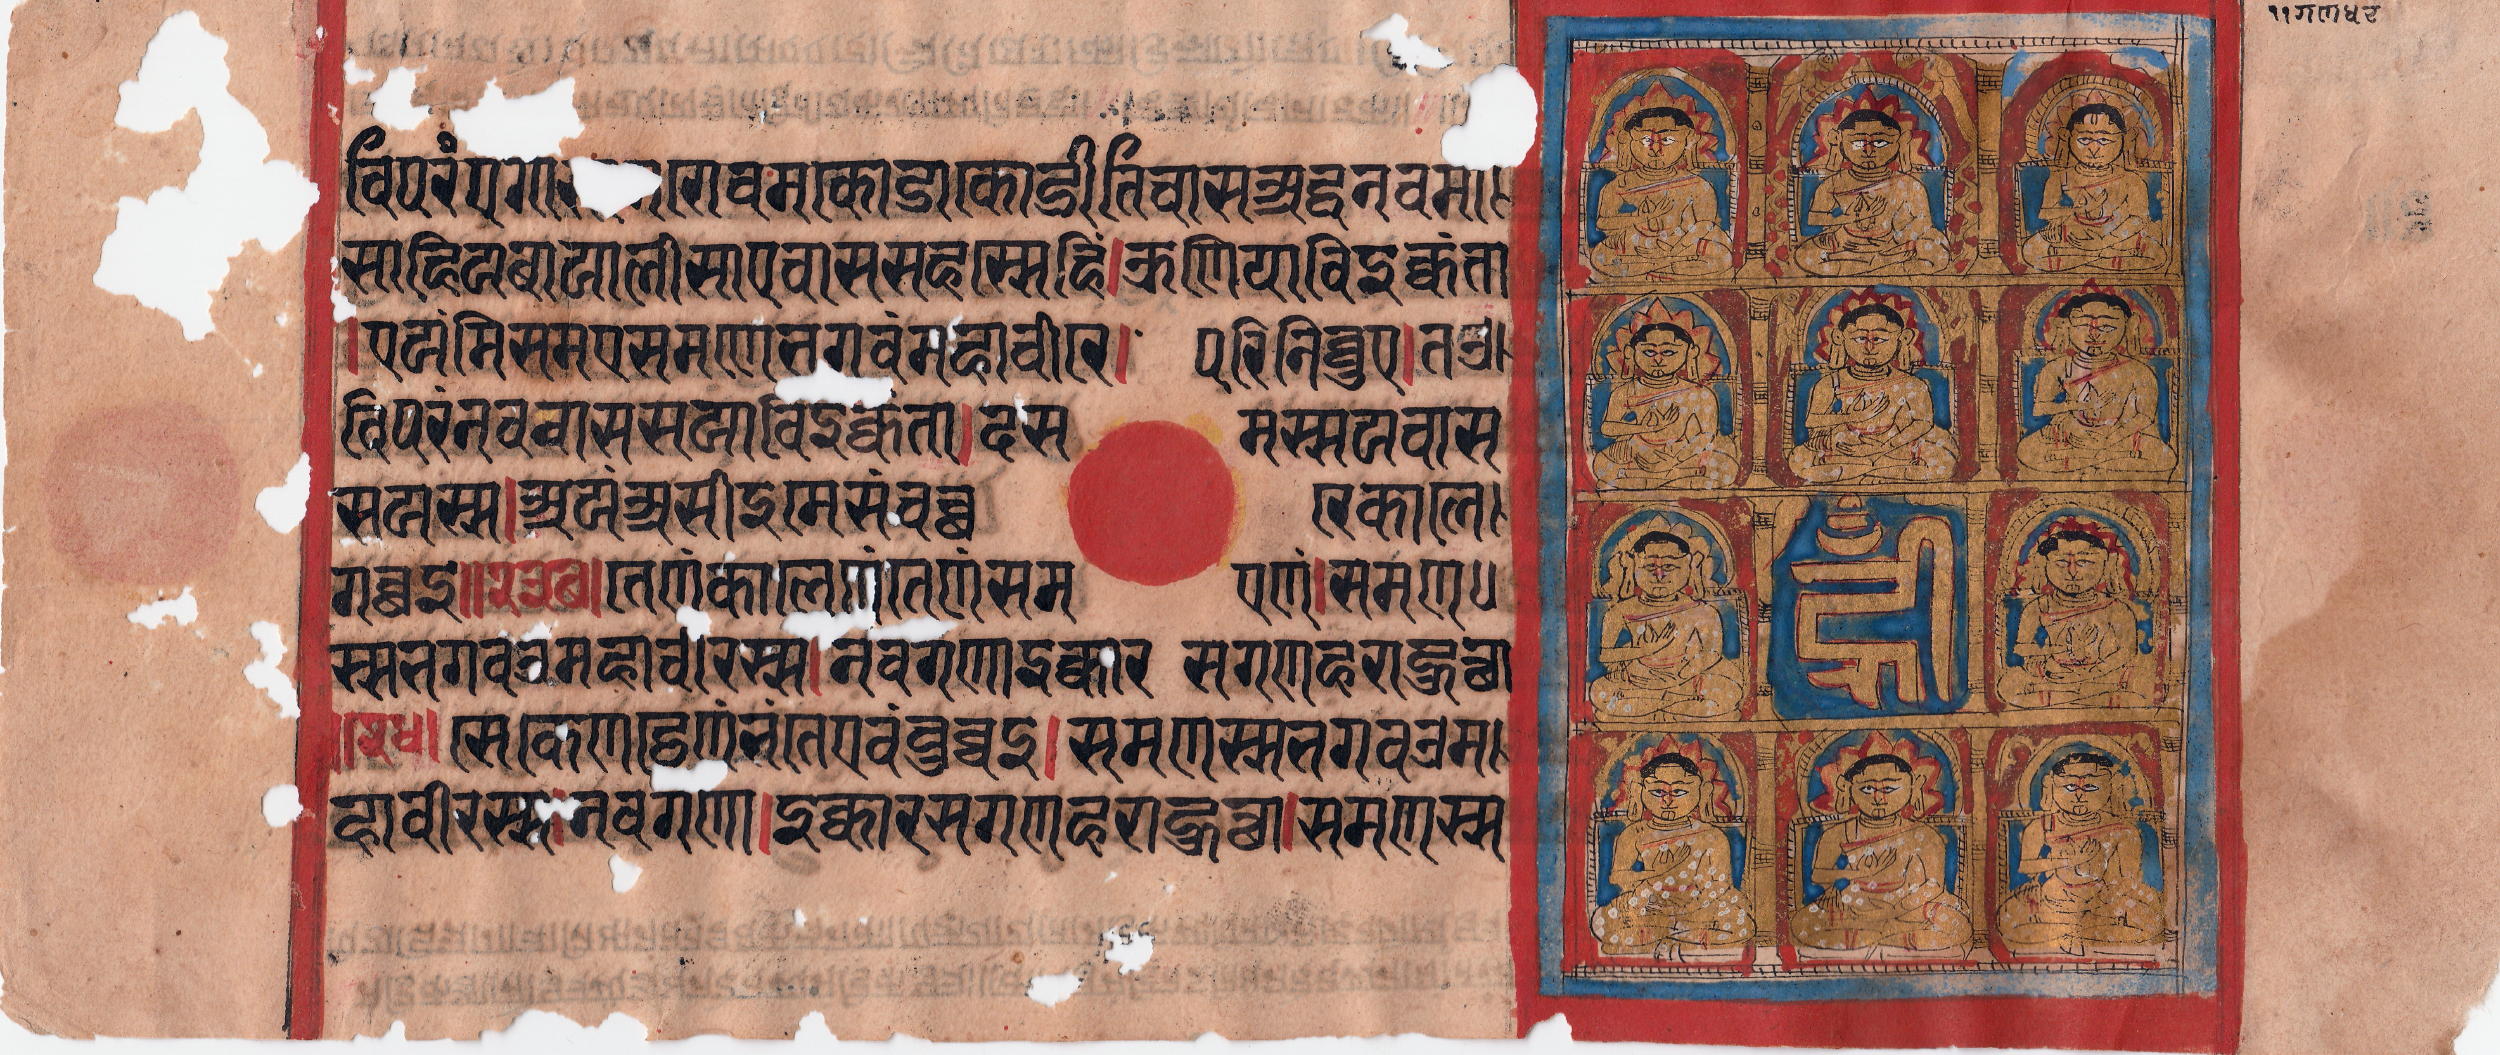 ११गणधर
विपरंएगा गोवमकोडाकोडीतिवासअद्धनवमा
साहियबायालीसाएवाससहस्सेहिं।ऊणियाविइक्कंता
।एयंमिसमएसमणेभगवंमहावीरे। परिनिव्वुए।तओ
विपरंनववाससयाविइक्कंता।दस मस्सयवास
सयस्स।अयंअसीइमेसंवच्छ रेकाले
गच्छइ॥ ॥तेणंकालेणंतेणंसम एणं।समण
स्सभगवओमहावीरस्स।नवगणाइक्कार सगणहराहुत्था
सेकेणट्ठेणंभंतेएवंवुच्चइ।समणस्सभगवओम
हावीरस्स।नवगणा।इक्कारसगणहराहुत्था।समणस्स
ह्रीँ